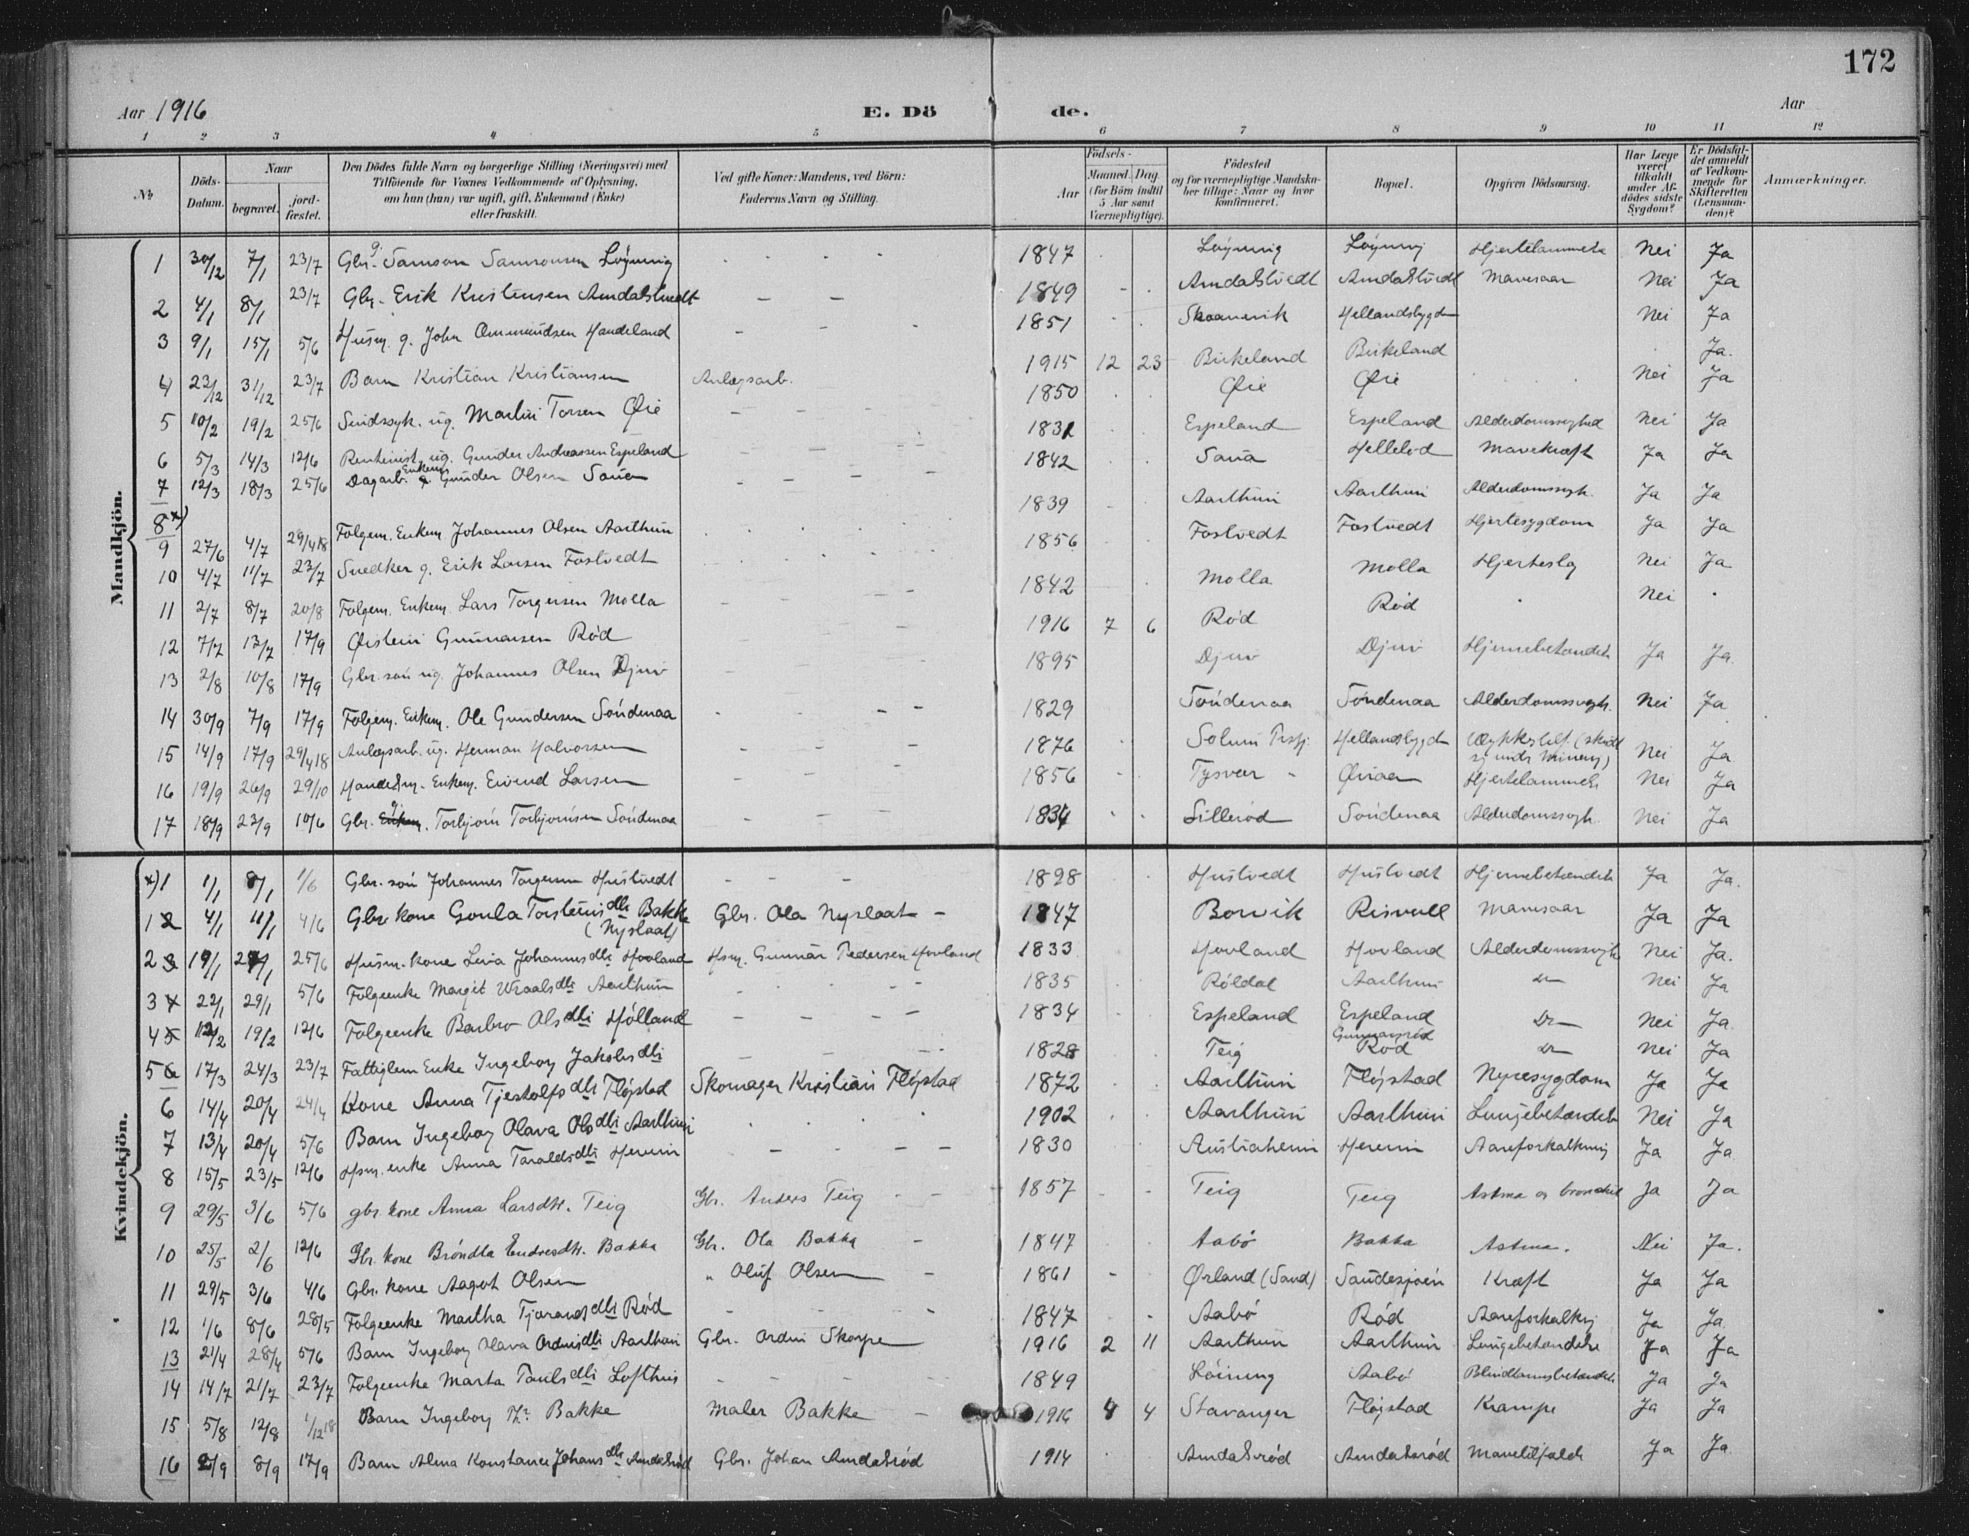 172
Aar 1916 E. Dö de. Aar
1 2 3 4 5 6 7 8 9 10 11 12
No Döds-Datum. Naar begravet. jordfæstet. Den Dödes fulde Navn og borgerlige Stilling (Næringsvei) med Tilföiende for Voxnes Vedkommende af Oplysning, om hun (han) var ugift, gift, Enkemand (Enke) eller fraskilt. Ved gifte Koner: Mandens, ved Börn: Faderens Navn og Stilling. Födsels- Aar Maaned. Dag. (for Börn indtil 5 Aar samt Værnepligtige). Födested og for værnepligtige Mandskaber tillige: Naar og hvor konfirmeret. Bopæl. Opgiven Dödsaarsag. Har Læge været tilkaldt under Afdödes sidste Sygdom? Er Dödsfaldet anmeldt af Vedkommende for Skifteretten (Lensmanden)? Anmærkninger.
Mandkjön.
1 30/12 7/1 23/7 Gbr. g. Samson Samsonsen Löyning 1847 Löyning Löyning Hjertelammelse Nei Ja
2 4/1 8/1 23/7 Gbr. Erik Kristensen Amdalstvedt 1849 Amdalstvedt Amdalstvedt Mavesaar Nei Ja
3 9/1 15/1 5/6 Husm. g. John Ommundsen Handeland 1851 Skaanevik Hellandsbygden Nei Ja
4 23/12 31/12 23/7 Barn Kristian Kristiansen Anlægsarb. 1915 12 23 Birkeland Birkeland Ja.
5 10/2 19/2 25/6 Sindssyk. ug. Martin Torsen Øie 1850 Øie Øie Nei Ja
6 5/3 14/3 12/6 Rentenist ug. Gunder Andreassen Espeland 1831 Espeland Espeland Alderdomssvaghed Nei Ja
7 12/3 18/3 25/6 Dagarb. Enkem. Gunder Olsen Saua 1842 Saua Hellelod Mavekræft Ja Ja
8 x)
9 27/6 4/7 29/4 18 Folgem. Enkem. Johannes Olsen Aarthun 1839 Aarthun Aarthun Alderdomssvagh. Ja Ja
10 4/7 11/7 23/7 Snedker g. Erik Larsen Fostvedt 1856 Fostvedt Fostvedt Hjertesygdom Ja Ja
11 2/7 8/7 20/8 Folgem. Enkem. Lars Torgersen Molla 1842 Molla Molla Hjerteslag Nei Ja
12 7/7 13/7 17/9 Øistein Gunnarsen Rød 1916 7 6 Rød Rød Nei
13 2/8 10/8 17/9 Gbr. søn ug. Johannes Olsen Djuv 1895 Djuv Djuv Hjernebetændels Ja Ja.
14 30/9 7/9 17/9 Folgem. Enkem. Ole Gundersen Söndenaa 1829 Söndenaa Söndenaa Alderdomssvagh. Nei Ja
15 14/9 17/9 29/4 18 Anlægsarb. ug. Herman Halvorsen 1876 Solum Hellandsbygd Nei Ja
16 19/9 26/9 29/10 Handelsm. Enkem. Eivind Larsen 1856 Tysvær Hjertelammels Nei Ja
17 18/9 23/9 10/6 Gbr. g. Enkem. Torbjørn Torbjørnsen Söndenaa 1834 Lillerød Söndenaa Alderdomssvagh. Nei Ja
Kvindekjön.
x) 1 1/1 8/1 1/6 Gbr. søn Johannes Torgersen Hustvedt 1898 Hustvedt Hustvedt Hjernebetændels Ja Ja.
1 2 4/1 11/1 4/6 Gbr. kone Gonla Torsteinsdtr Bakke (Nyslaat) Gbr. Ola Nyslaat 1847 Borvik Risvoll Mavesaar Ja Ja
2 3 19/1 27/1 25/6 Husm. kone Lina Johannesdtr Hovland Hsm. Gunnar Pedersen Hovland 1833 Hovland Hovland Alderdomssvagh Nei Ja.
3 4 22/1 29/1 5/6 Folgeenke Margit Vraalsdtr Aarthun 1835 Røldal Aarthun do Nei Ja
4 5 12/2 19/2 12/6 Folgeenke Barbro Olsdtr Hølland 1834 Espeland Espeland Do Nei Ja.
5 6 17/3 24/3 23/7 Fattiglem Enke Ingeborg Jakobsdtr 1828 Teig Gunnarsrød Rød do Nei Ja
6 14/4 20/4 24/4 Kone Anna Tjestolfsdtr Fløgstad Skomager Kristian Fløgstad 1872 Aarthun Fløgstad Nyresygdom Ja Ja
7 13/4 20/4 5/6 Barn Ingeborg Olava Olsdtr Aarthun 1902 Aarthun Aarthun Lungebetændels Nei Ja
8 15/5 23/5 12/6 Hsm. enke Anna Taraldsdtr Hereim 1830 Austraheim Hereim Aareforkalkning Ja Ja
9 29/5 3/6 5/6 gbr. kone Anna Larsdtr. Teig Gbr. Anders Teig 1857 Teig Teig Astma og bronchit Ja Ja
10 25/5 2/6 12/6 Gbr. kone Brøndla Endresdtr. Bakka Gbr. Ola Bakka 1847 Aabø Bakka Astma. Nei Ja.
11 29/5 3/6 4/6 Gbr. kone Aagot Olsen " Oluf Olsen 1861 Ørland (Sand) Sandesjøen Kræft Ja Ja
12 1/6 8/6 28/5 Folgeenke Martha Tjorandsdtr Rød 1847 Aabø Rød Aareforkalkng Ja Ja.
13 21/4 28/4 5/6 Barn Ingeborg Olava Ordinsdtr Aarthun Gbr. Ordin Skorpe 1916 2 11 Aarthun Aarthun Lungebetændelse Ja Ja
14 14/7 21/7 23/7 Folgeenke Marta Paulsdtr Lofthus 1849 Løining Aabø Blindtarmsbetændels Ja Ja
15 5/8 12/8 1/12 18 Barn Ingeborg Bakke Maler Bakke 1916 4 4 Stavanger Fløgstad Krampe Ja Ja
16 2/9 8/9 17/9 Barn Alma Konstance Johansdtr Amdalsrød Gbr. Johan Amdalsrød 1914 Amdalsrød Amdalsrød Ja Ja